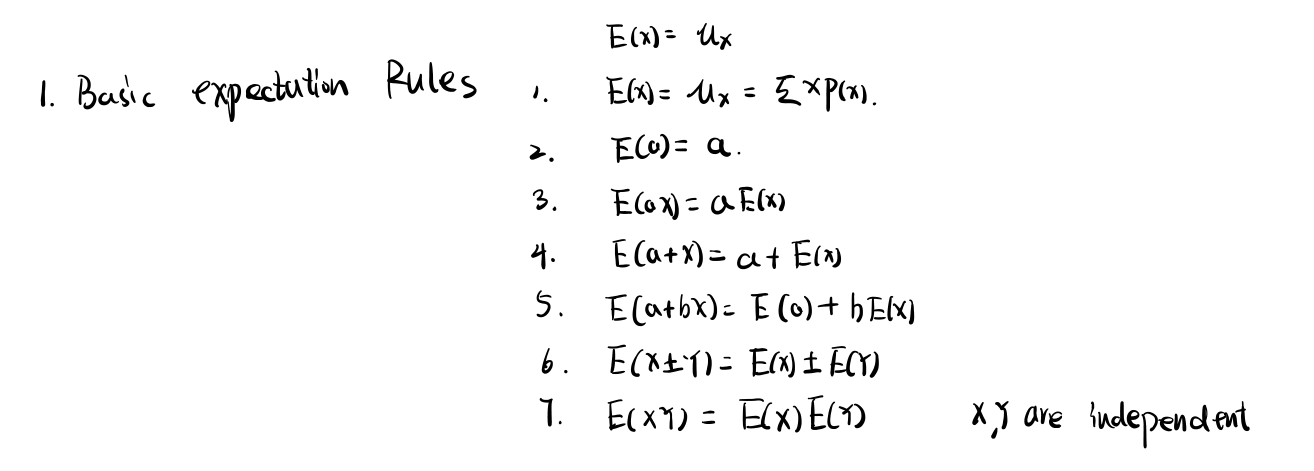 E(x) = μx
1. Basic expectation Rules 1. E(x) = μx = Σxp(x).
2. E(a) = a.
3. E(ax) = aE(x)
4. E(a+x) = a + E(x)
5. E(a+bx) = E(a) + bE(x)
6. E(X±Y) = E(x) ± E(Y)
7. E(XY) = E(X)E(Y) X,Y are independent